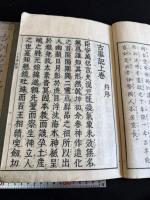 古事記上卷 并序
臣安萬侶言夫混元既凝氣象未效無名
無爲誰知其形然乾坤初分參神作造化
之首陰陽斯開二靈爲群品之祖所以出
入幽顯日月彰於洗目浮沈海水神祇呈
於滌身故太素杳冥因本教而識孕土產
嶋之時元始綿邈賴先聖而察生神立人
之世寔知懸鏡吐珠而百王相續喫釼切